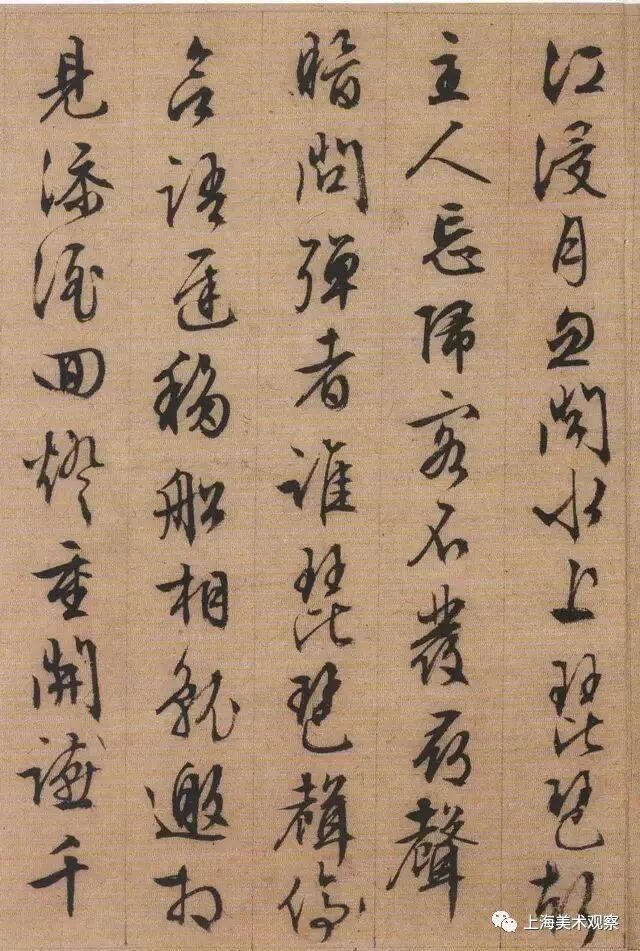 江浸月忽聞水上琵琶聲
主人忘歸客不發尋聲
暗問彈者誰琵琶聲停
語遲移船相就邀相
見添酒回燈重開讌千
上海美术观察